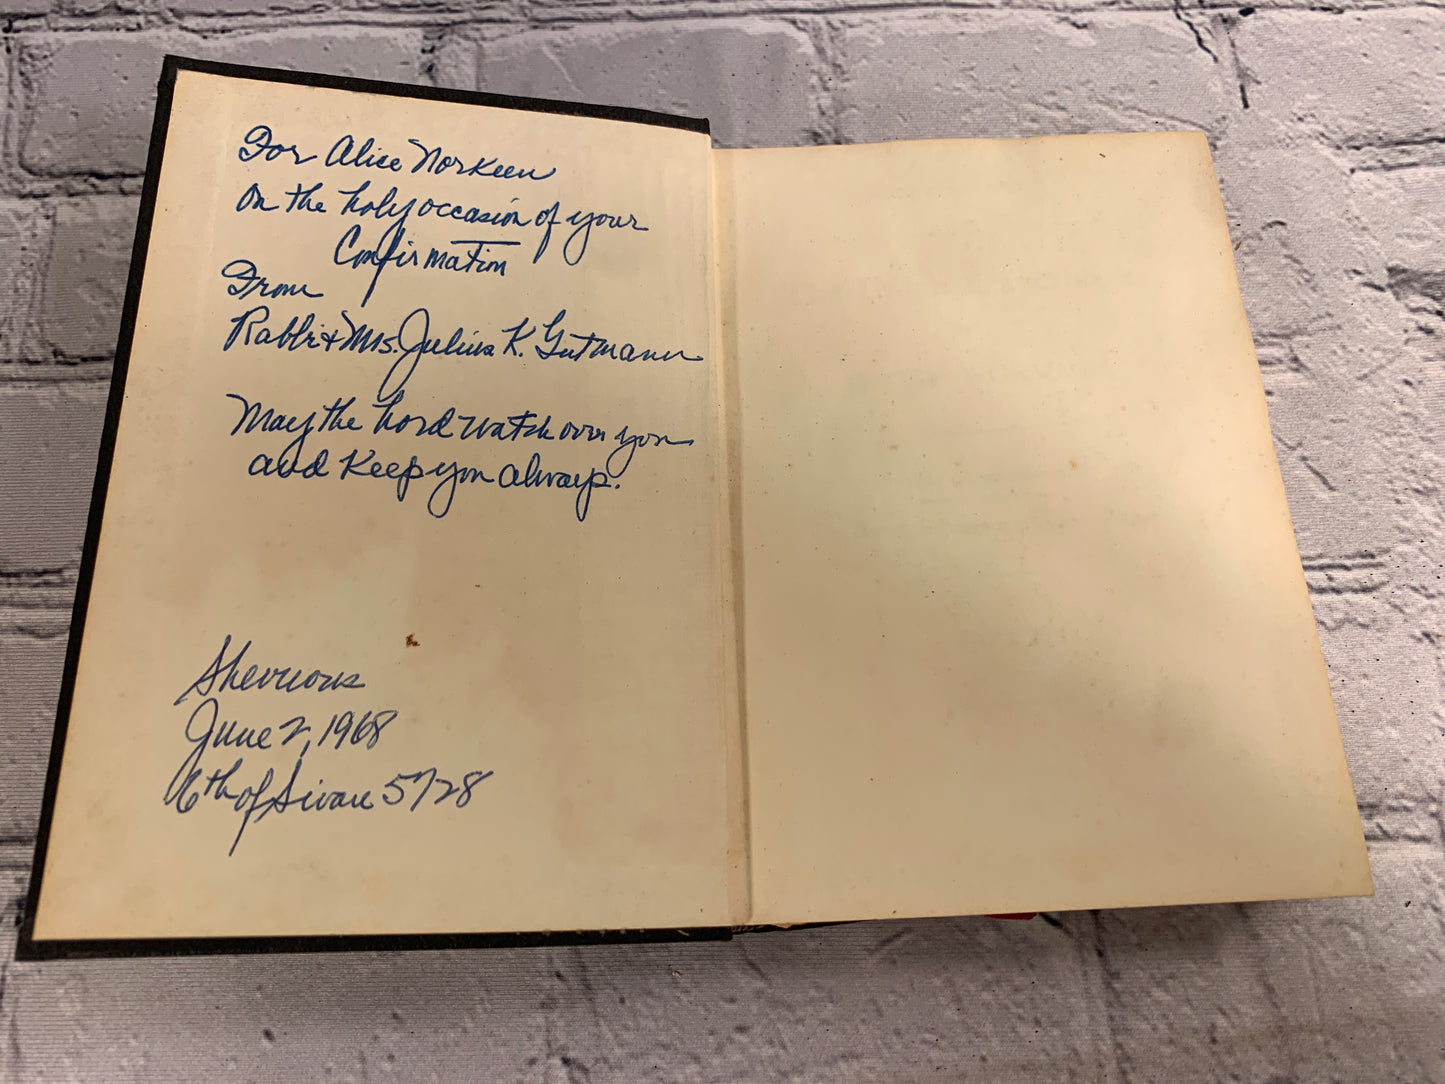 For Alice Norkeen
on the holy occasion of your
Confirmation
From
Rabbi + Mrs. Julius K. Gutmann
May the Lord watch over you
and keep you always.
June 2, 1968
6th of Sivan 5728